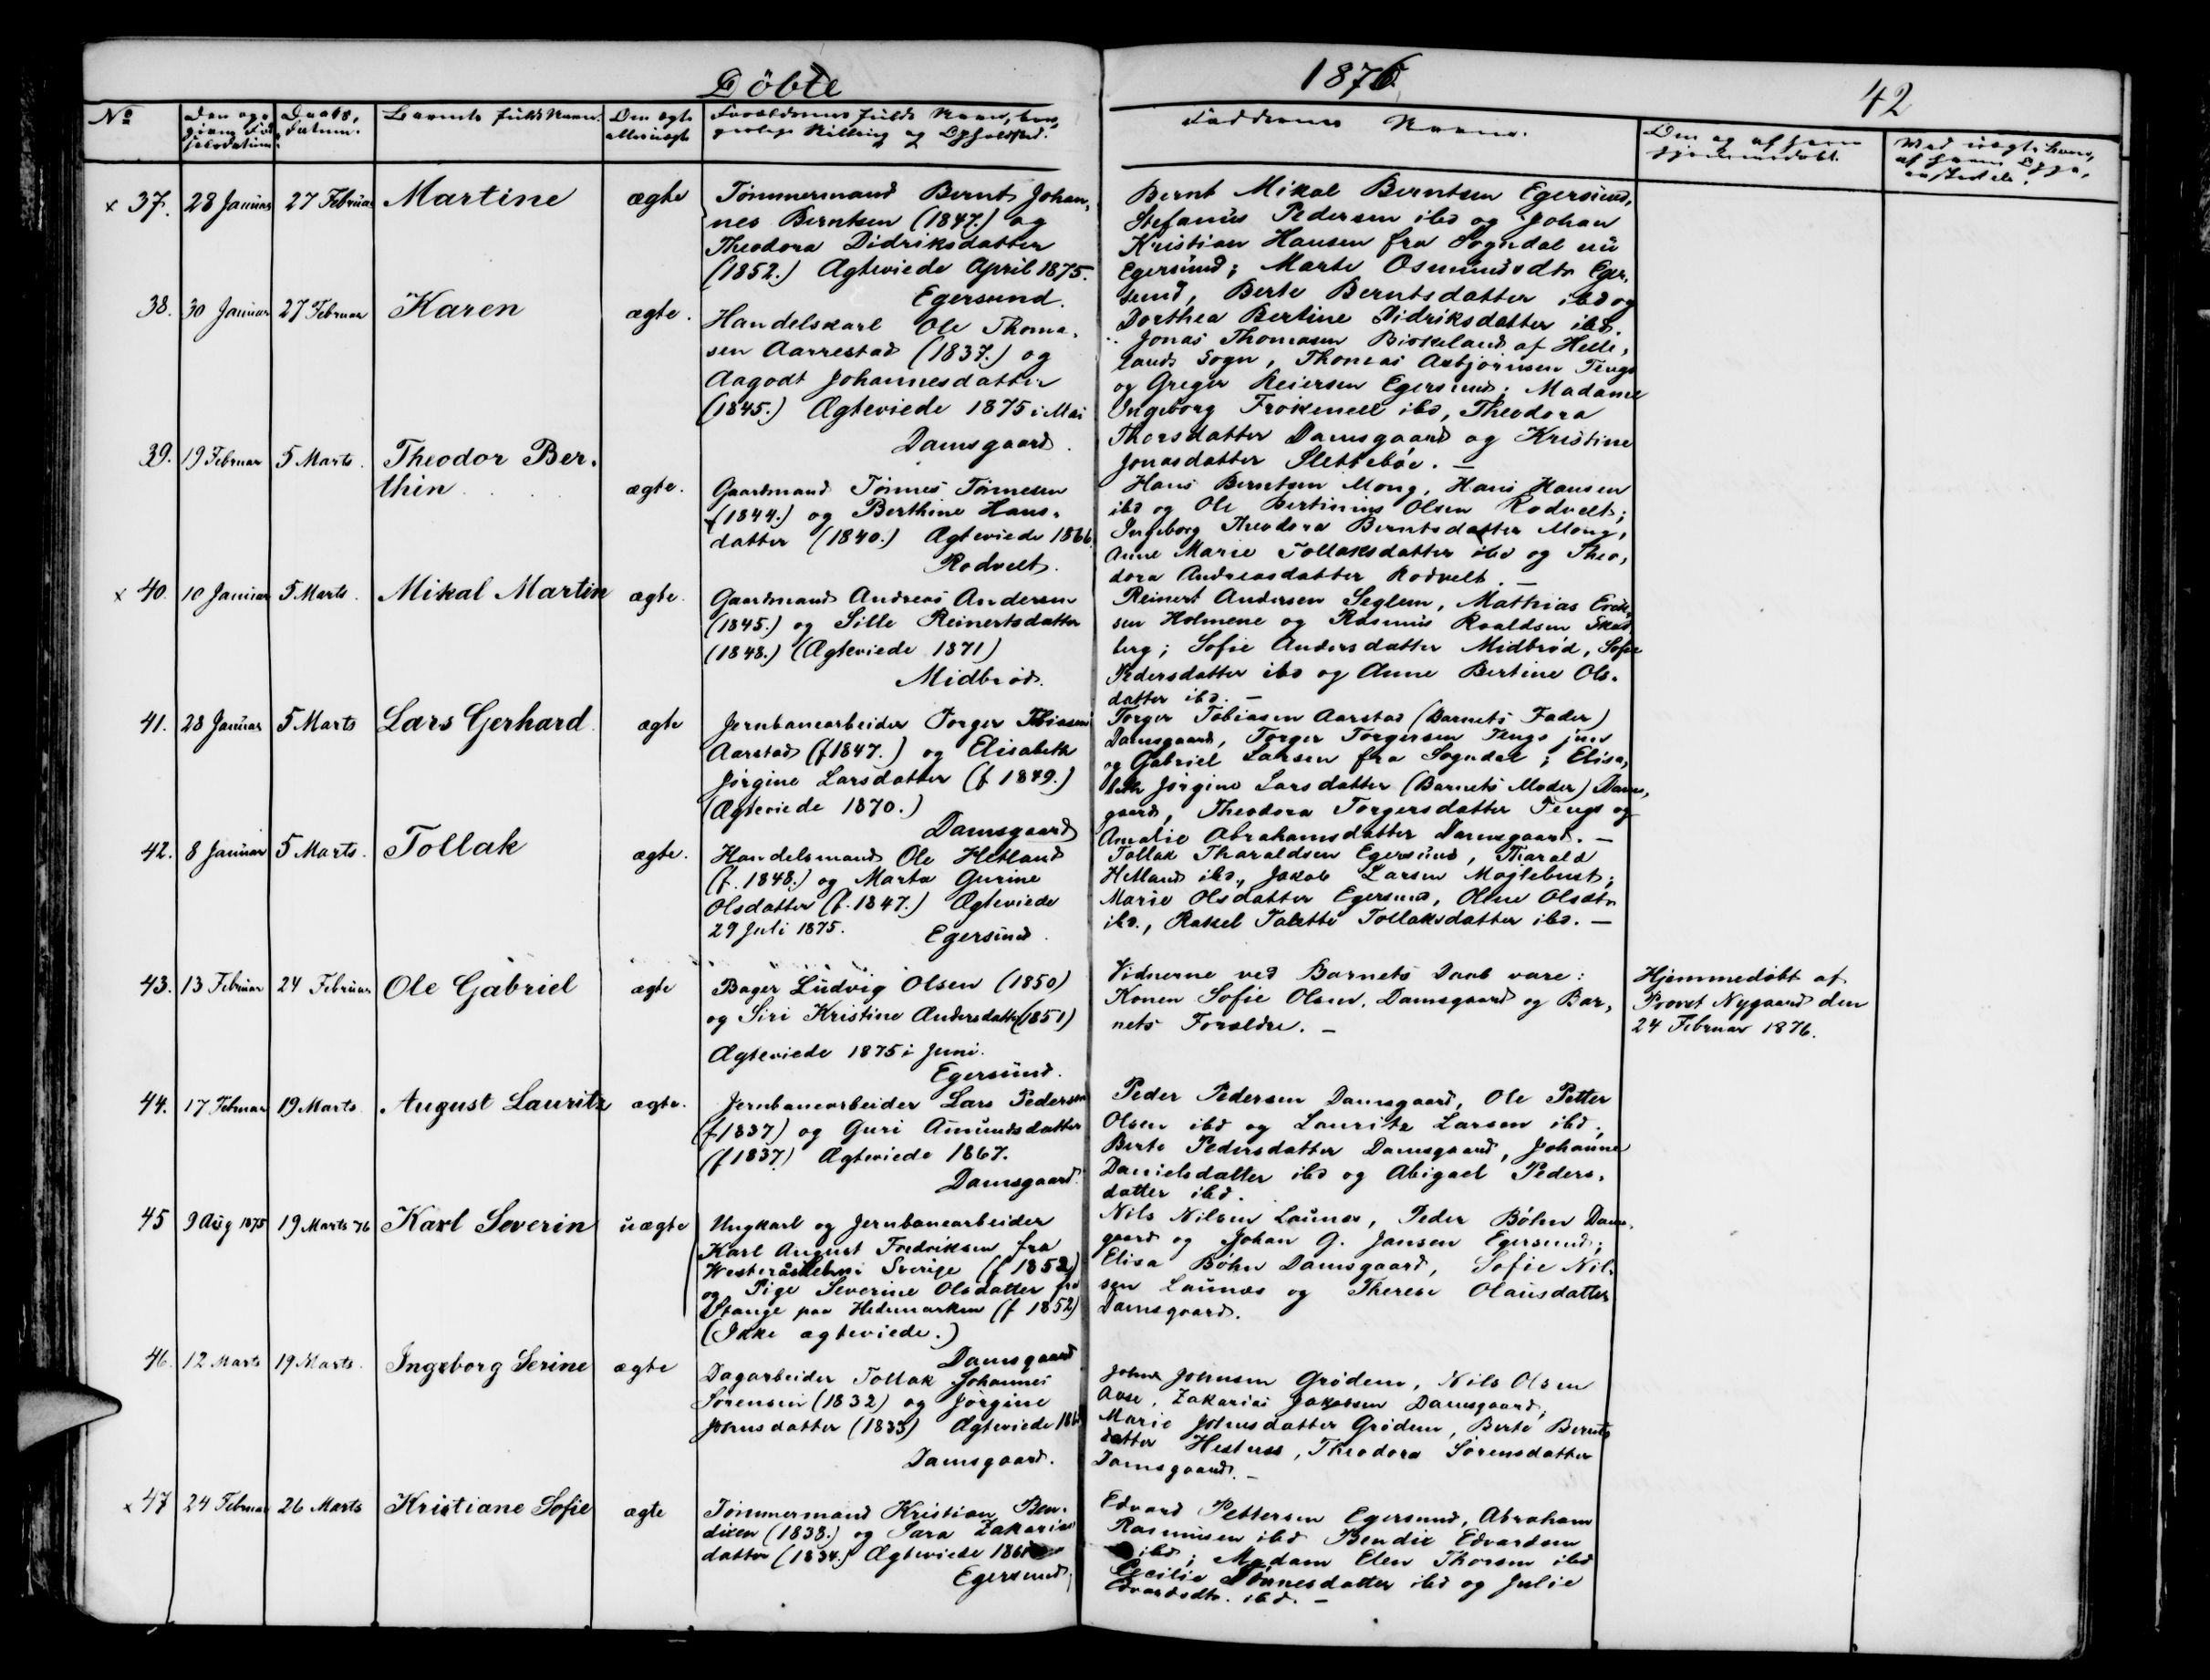 Döbte
1876
42
No
Daabs-
datum.
Barnets fulde Navn.
Den ægte
eller uægte
Forældrenes fulde Navn, bor-
gerlige Stilling og Opholdsted.
Faddernes Navne.
x 37. 28 Januar 27 Februar Martine ægte
Tömmermand Bernt Johan-
nes Berntsen (1847.) og
Theodora Didriksdatter
(1852.) Ægteviede April 1875.
Egersund.
Bernt Mikal Berntsen Egersund,
Stefanus Pedersen ibd og Johan
Kristian Hansen fra Sogndal nu
Egersund; Marte Osmundsdtr Eger-
sund, Berte Berntsdatter ibd og
Dorthea Bertine Didriksdatter ibd.
38. 30 Januar 27 Februar Karen ægte.
Handelskarl Ole Thoma-
sen Aarrestad (1837.) og
Aagodt Johannesdatter
(1845.) Ægteviede 1875 i Mai
Damsgaard.
Jonas Thomasen Birkeland af Helle-
lands Sogn, Thomas Asbjörnsen Tengs
og Greger Reiersen Egersund; Madame
Ingeborg Frökenell ibd, Theodora
Thorsdatter Damsgaard og Kristine
Jonasdatter Slettebøe. –
39. 19 Februar 5 Marts. Theodor Ber-
thin ægte.
Gaardmand Tönnes Tönnesen
(1844.) og Berthine Hans-
datter (1840.) Ægteviede 1866.
Rodvelt.
Hans Berntsen Mong, Hans Hansen
ibd og Ole Bertinius Olsen Rodvelt;
Ingeborg Theodora Berntsdatter Mong,
Anne Marie Tollaksdatter ibd og Theo-
dora Andreasdatter Rodvelt. –
x 40. 10 Januar 5 Marts. Mikal Martin ægte.
Gaardmand Andreas Andersen
(1845.) og Sille Reinertsdatter
(1848.) (Ægteviede 1871)
Midbröd.
Reinert Andersen Seglem, Mathias Erik-
sen Holmene og Rasmus Roaldsen Skad-
berg; Sofie Andersdatter Midbröd, Sofie
Pedersdatter ibd og Anne Bertine Ols-
datter ibd. –
41. 28 Januar 5 Marts Lars Gerhard ægte
Jernbanearbeider Torger Tobiasen
Aarstad (f 1847.) og Elisabeth
Jörgine Larsdatter (f 1849.)
(Ægteviede 1870.)
Damsgaard
Torger Tobiasen Aarstad (Barnets Fader)
Damsgaard, Torger Torgersen Tengs jun
og Gabriel Larsen fra Sogndal; Elisa-
beth Jörgine Larsdatter (Barnets Moder) Dams-
gaard, Theodora Torgersdatter Tengs og
Amalie Abrahamsdatter Damsgaard. –
42. 8 Januar 5 Marts. Tollak ægte.
Handelsmand Ole Hetland
(f. 1848.) og Marta Gurine
Olsdatter (f. 1847.) Ægteviede
29 Juli 1875.
Egersund.
Tollak Tharaldsen Egersund, Tharald
Hetland ibd., Jakob Larsen Møglebust;
Marie Olsdatter Egersund, Oline Olsdtr
ibd., Rakel Talette Tollaksdatter ibd. –
43. 13 Februar 24 Februar Ole Gabriel ægte
Bager Ludvig Olsen (1850)
og Siri Kristine Andersdatter (1851)
Ægteviede 1875 i Juni.
Egersund.
Vidnerne ved Barnets Daab vare:
Konen Sofie Olsen, Damsgaard og Bar-
nets Forældre. –
Hjemmedöbt af
Provst Nygaard den
24 Februar 1876.
44. 17 Februar 19 Marts August Lauritz ægte.
Jernbanearbeider Lars Pedersen
(f 1837) og Guri Amundsdatter
(f 1837) Ægteviede 1867.
Damsgaard.
Peder Pedersen Damsgaard, Ole Petter
Olsen ibd og Lauritz Larsen ibd.;
Berte Pedersdatter Damsgaard, Johanne
Danielsdatter ibd og Abigael Peders-
datter ibd.
45 9 Aug 1875 19 Marts 76 Karl Severin uægte
Ungkarl og Jernbanearbeider
Karl August Fredriksen fra
Sverige (f 1852)
og Pige Severine Olsdatter fra
Stange paa Hedemarken (f 1852)
(Ikke ægteviede.)
Damsgaard
Nils Nilsen Launes, Peder Böhn Dams-
gaard og Johan G. Jansen Egersund;
Elisa Böhn Damsgaard, Sofie Nil-
sen Launes og Therese Olausdatter
Damsgaard.
46. 12 Marts 19 Marts. Ingeborg Serine ægte
Dagarbeider Tollak Johannes
Sörensen (1832) og Jörgine
Johnsdatter (1833) Ægteviede
Damsgaard.
John Johnsen Grödem, Nils Olsen
Aase, Zakarias Jakobsen Damsgaard;
Marie Johnsdatter Grödem, Berte Bernts-
datter Hestnes, Theodora Sörensdatter
Damsgaard. –
x 47 24 Februar 26 Marts Kristiane Sofie ægte
Tömmermand Kristian Ben-
dixen (1838.) og Sara Zakarias
datter (1834.) Ægteviede
Egersund.
Edvard Pettersen Egersund, Abraham
Rasmusen ibd Bendix Edvardsen
ibd; Madam Elen Thorsen ibd
Cecilie Tönnesdatter ibd og Julie
Edvardsdtr. ibd. –